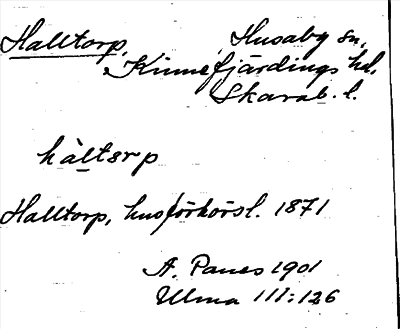 Halltorp, Husaby sn,
Kinnefjärdings hd.
Skarab. l.
hàltsrp
Halltorp, husförhörsl. 1871
A. Panes 1901
Ulma 111:126